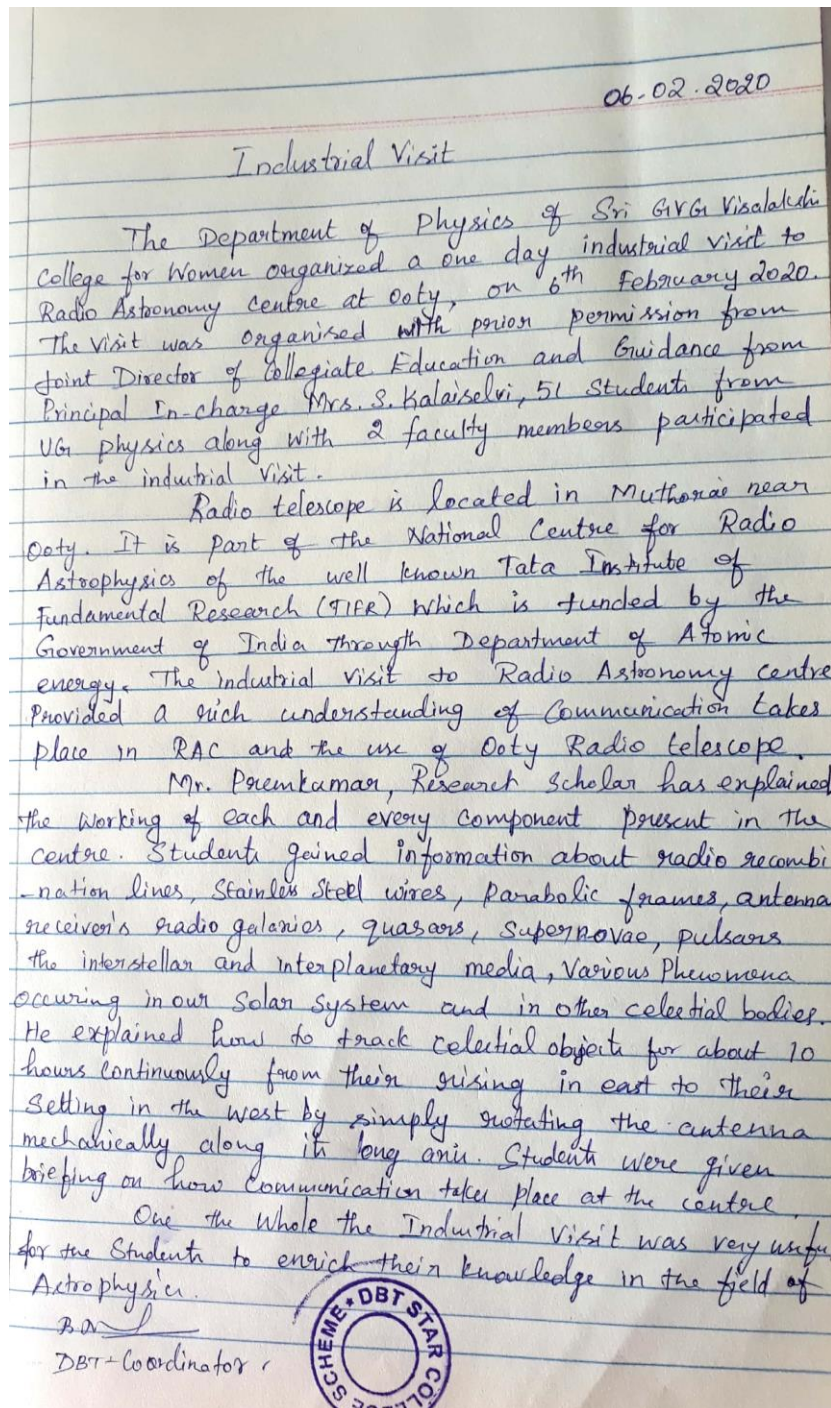 06-02-2020
Industrial Visit
The Department of Physics of Sri GVG Visalakshi
College for Women organized a one day industrial visit to
Radio Astronomy Centre at Ooty, on 6th February 2020.
The Visit was organised with prior permission from
Joint Director of Collegiate Education and Guidance from
Principal In-charge Mrs. S. Kalaiselvi, 51 Students from
UG physics along with 2 faculty members participated
in the industrial Visit.
Radio telescope is located in Muthorai near
Ooty. It is part of the National Centre for Radio
Astrophysics of the well known Tata Institute of
Fundamental Research (TIFR) which is funded by the
Government of India through Department of Atomic
energy. The industrial visit to Radio Astronomy centre
Provided a rich understanding of Communication takes
place in RAC and the use of Ooty Radio telescope.
Mr. Premkumar, Research Scholar has explained
the working of each and every component present in the
centre. Students gained information about radio recombi
-nation lines, Stainless Steel wires, Parabolic frames, antenna
receiver's radio galaxies, quasars, Supernovae, pulsars
the interstellar and interplanetary media, Various Phenomena
occuring in our Solar System and in other celestial bodies.
He explained how to track celestial objects for about 10
hours continuously from their rising in east to their
Setting in the west by simply rotating the antenna
mechanically along its long axis. Students were given
briefing on how Communication takes place at the centre.
One the Whole the Industrial Visit was very useful
for the Students to enrich their knowledge in the field of
Astrophysics.
DBT-Coordinator
DBT STAR COLLEGE SCHEME